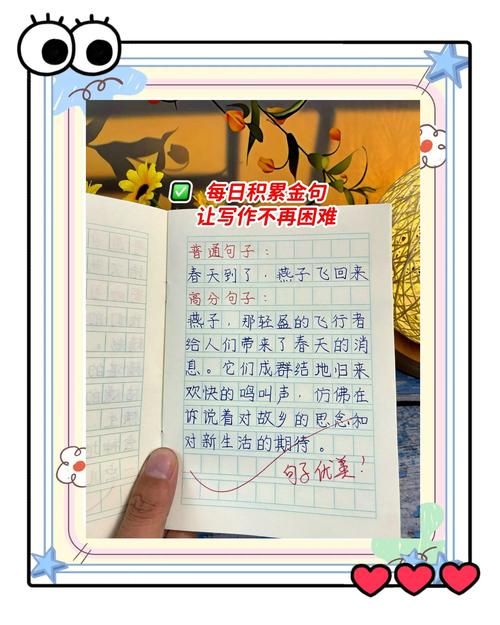 ✅ 每日积累金句
让写作不再困难
普通句子：
春天到了，燕子飞回来
高分句子：
燕子，那轻盈的飞行者
给人们带来了春天的消
息。它们成群结地归来
欢快的鸣叫声，仿佛在
诉说着对故乡的思念和
对新生活的期待。
句子优美！